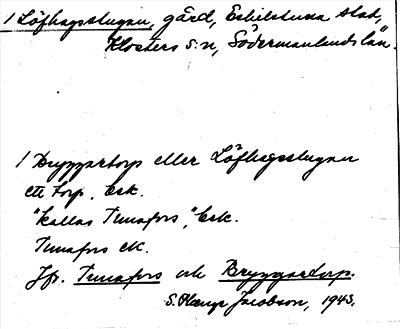 1 Löfhagsstugan, gård, Eskilstuna stad,
Klosters s:n, Södermanlands län.
1 Bryggartorp eller Löfhagsstugan
ett torp. Esk.
"kallas Tunafors", Esk.
Tunafors ek.
Jfr. Tunafors och Bryggartorp.
S. Jacobson, 1943.